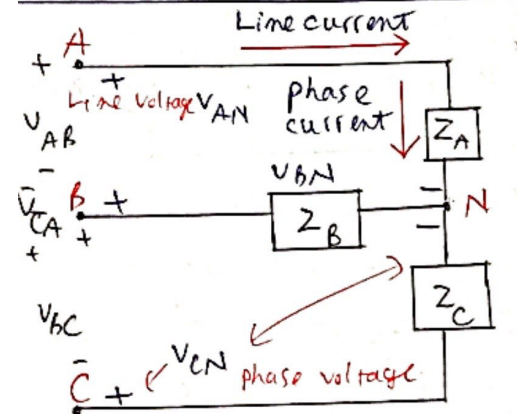 Line current
A
+
+
Line Voltage VAN
phase
current
ZA
VAB
-
VBN
-
N
-
VCA
B
+
+
+
ZB
-
ZC
VbC
-
C
+
VCN
phase voltage